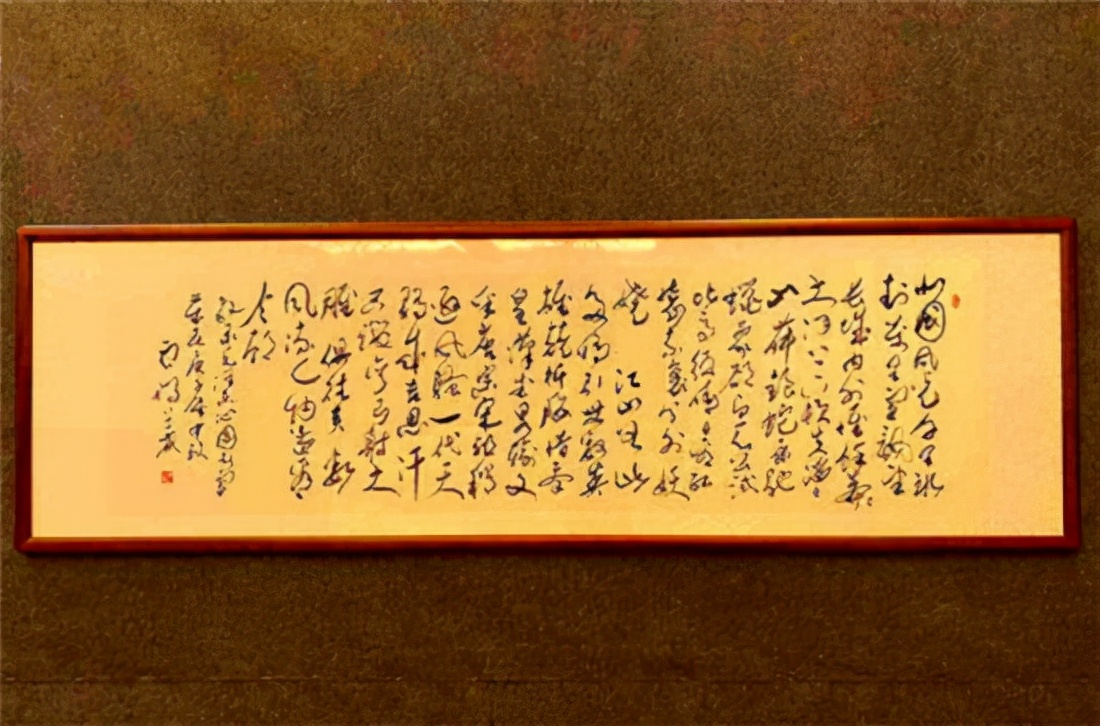 北国风光千里冰
封万里雪飘望
长城内外惟余莽莽
大河上下顿失滔滔
山舞银蛇原驰
蜡象欲与天公试
比高须晴日看红
装素裹分外妖
娆 江山如此
多娇引无数英
雄竞折腰惜秦
皇汉武略输文
采唐宗宋祖稍
逊风骚一代天
骄成吉思汗
只识弯弓射大
雕 俱往矣 数
风流人物还看
今朝